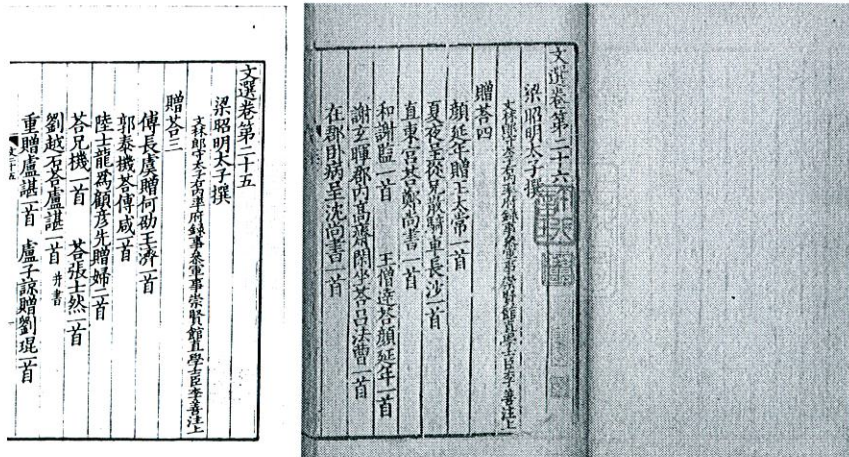 文選卷第二十五
梁昭明太子撰
文林郎守太子右率府録事參軍事崇賢館直學士臣李善注上
贈荅三
傅長虞贈何劭王濟一首
郭泰機荅傅咸一首
陸士龍爲顧彦先贈婦二首
荅兄機一首 荅張士然一首
劉越石荅盧諶一首 并書
重贈盧諶一首 盧子諒贈劉琨一首
文選卷第二十六
梁昭明太子撰
文林郎守太子右率府録事參軍事崇賢館直學士臣李善注上
贈荅四
顔延年贈王太常一首
夏夜呈從兄散騎車長沙一首
直東宫荅鄭尚書一首
和謝監一首 王僧達荅顔延年一首
謝玄暉郡内高齋閑坐荅吕法曹一首
在郡卧病呈沈尚書一首